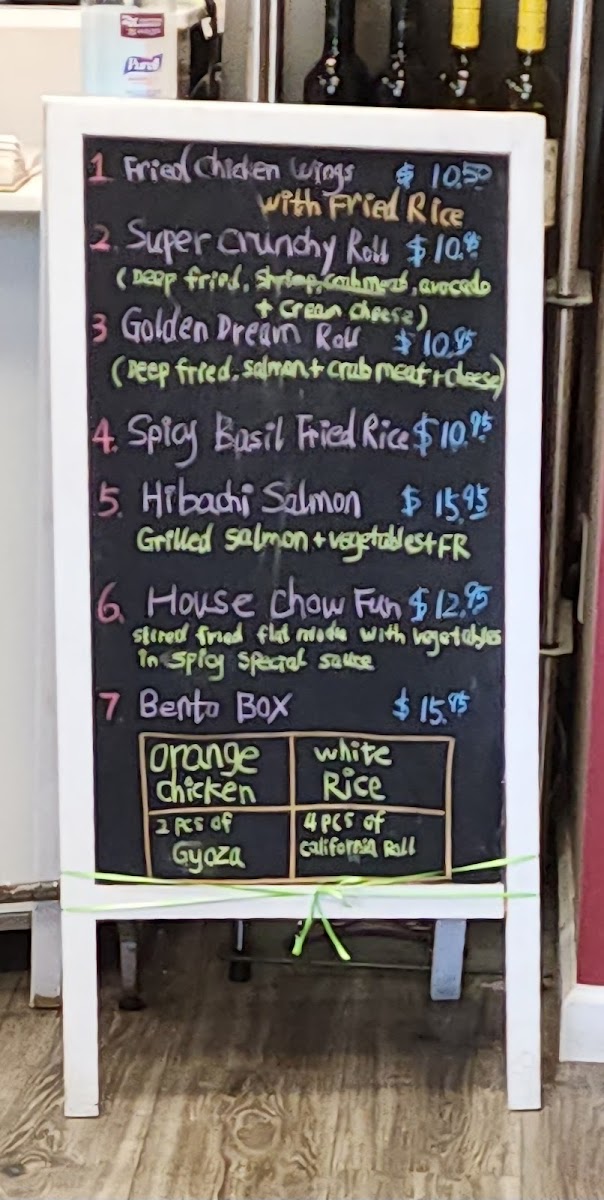 Purell
1 Fried Chicken Wings $ 10.50
with Fried Rice
2. Super Crunchy Roll $ 10.95
(Deep fried, shrimp, crab meat, avocado
+ cream cheese)
3 Golden Dream Roll $ 10.95
(Deep fried, salmon + crab meat + cheese)
4. Spicy Basil Fried Rice $ 10.95
5. Hibachi Salmon $ 15.95
Grilled salmon + vegetables + FR
6. House Chow Fun $ 12.95
stired fried flat noodle with vegetables
in spicy special sauce
7 Bento Box $ 15.95
orange chicken
white Rice
2 pcs of Gyoza
4 pcs of California Roll